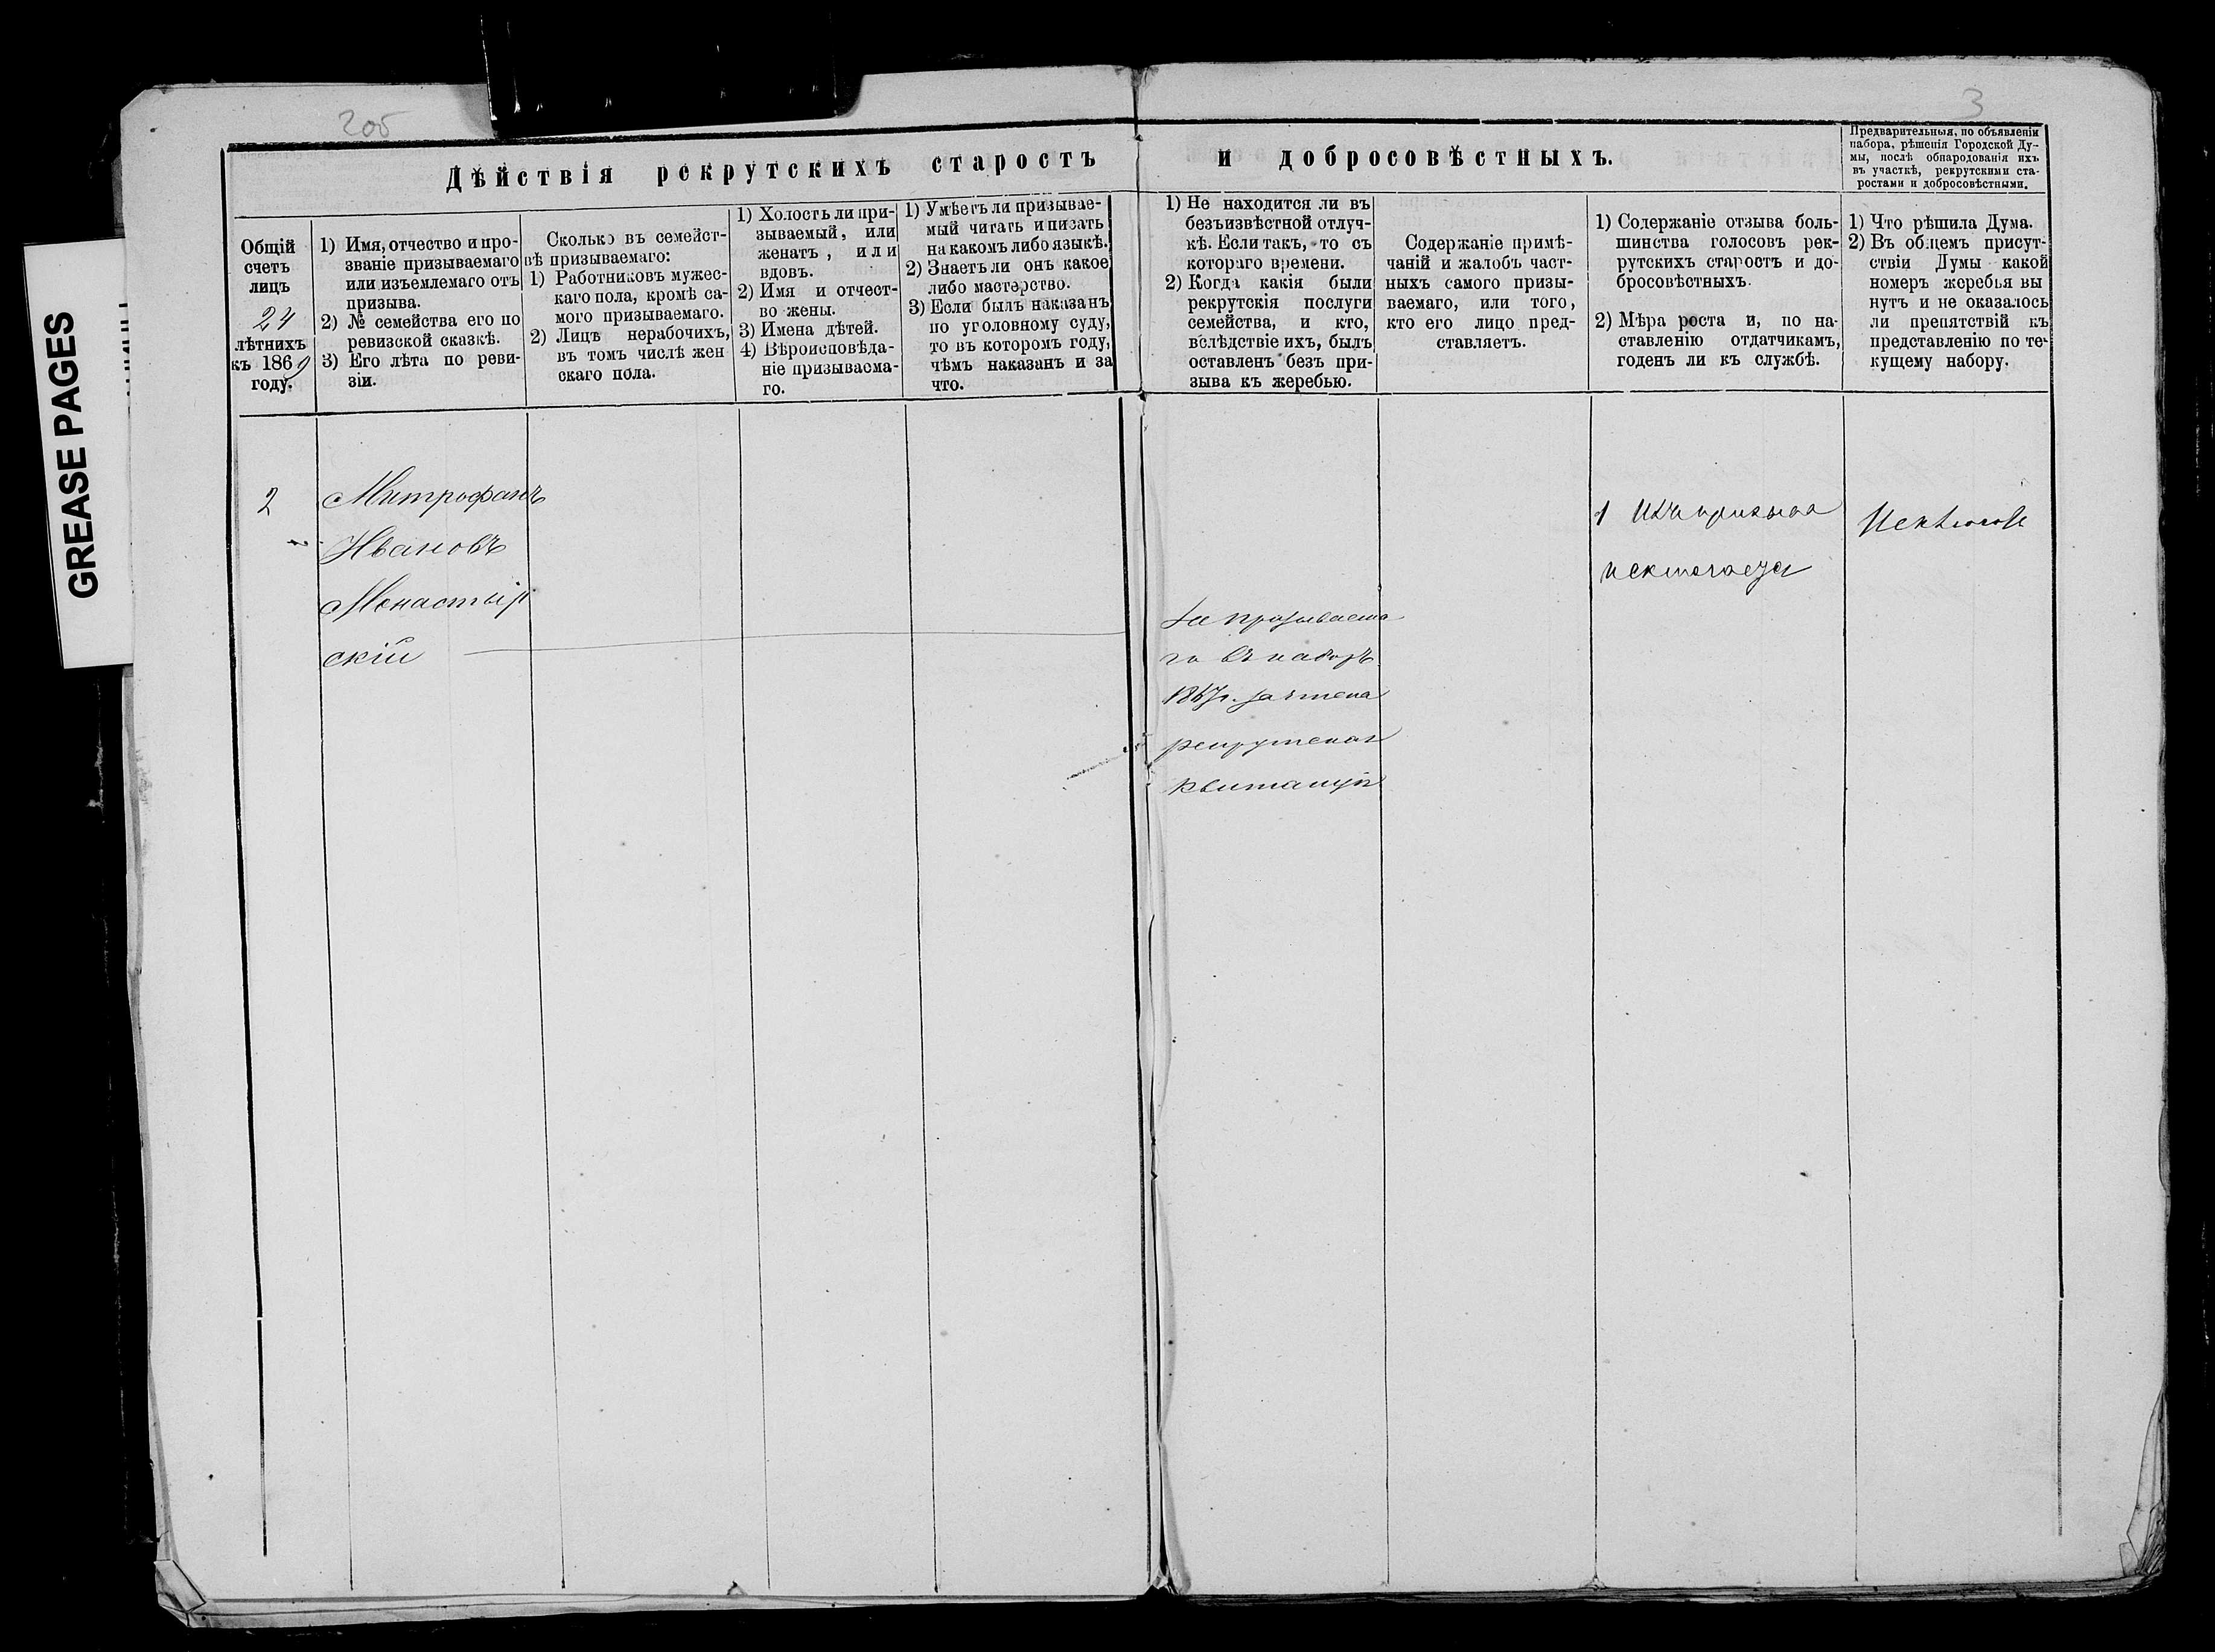 2об
3
GREASE PAGES
Дѣйствія рекрутскихъ старостъ и добросовѣстныхъ.
Предварительныя, по объявленіи
набора, рѣшенія Городской Ду-
мы, послѣ обнародованія ихъ
въ участкѣ, рекрутскими ста-
ростами и добросовѣстными.
Общій
счетъ
лицъ
24
лѣтнихъ
къ 1869
году.
1) Имя, отчество и про-
званіе призываемаго
или изъемлемаго отъ
призыва.
2) № семейства его по
ревизской сказкѣ.
3) Его лѣта по реви-
зіи.
Сколько въ семейст-
вѣ призываемаго:
1) Работниковъ мужес-
каго пола, кромѣ са-
мого призываемаго.
2) Лицъ нерабочихъ,
въ томъ числѣ жен
скаго пола.
1) Холостъ ли при-
зываемый, или
женатъ, или
вдовъ.
2) Имя и отчест-
во жены.
3) Имена дѣтей.
4) Вѣроисповѣда-
ніе призываема-
го.
1) Умѣетъ ли призывае-
мый читать и писать
на какомъ либо языкѣ.
2) Знаетъ ли онъ какое
либо мастерство.
3) Если былъ наказанъ
по уголовному суду,
то въ которомъ году,
чѣмъ наказанъ и за
что.
1) Не находится ли въ
безъизвѣстной отлуч-
кѣ. Если такъ, то съ
котораго времени.
2) Когда какія были
рекрутскія послуги
семейства, и кто,
вслѣдствіе ихъ, былъ
оставленъ безъ при-
зыва къ жеребью.
Содержаніе примѣ-
чаній и жалобъ част-
ныхъ самого призы-
ваемаго, или того,
кто его лицо пред-
ставляетъ.
1) Содержаніе отзыва боль-
шинства голосовъ рек-
рутскихъ старостъ и до-
бросовѣстныхъ.
2) Мѣра роста и, по на-
ставленію отдатчикамъ,
годенъ ли къ службѣ.
1) Что рѣшила Дума.
2) Въ общемъ присут-
ствіи Думы какой
номеръ жеребья вы
нутъ и не оказалось
ли препятствій къ
представленію по те-
кущему набору.
2
Митрофанъ
Ивановъ
Монастыр
скій
За призываема
го въ наборъ
1867г. зачтена
рекрутская
квитанція
1 Изъ призыва
исключается